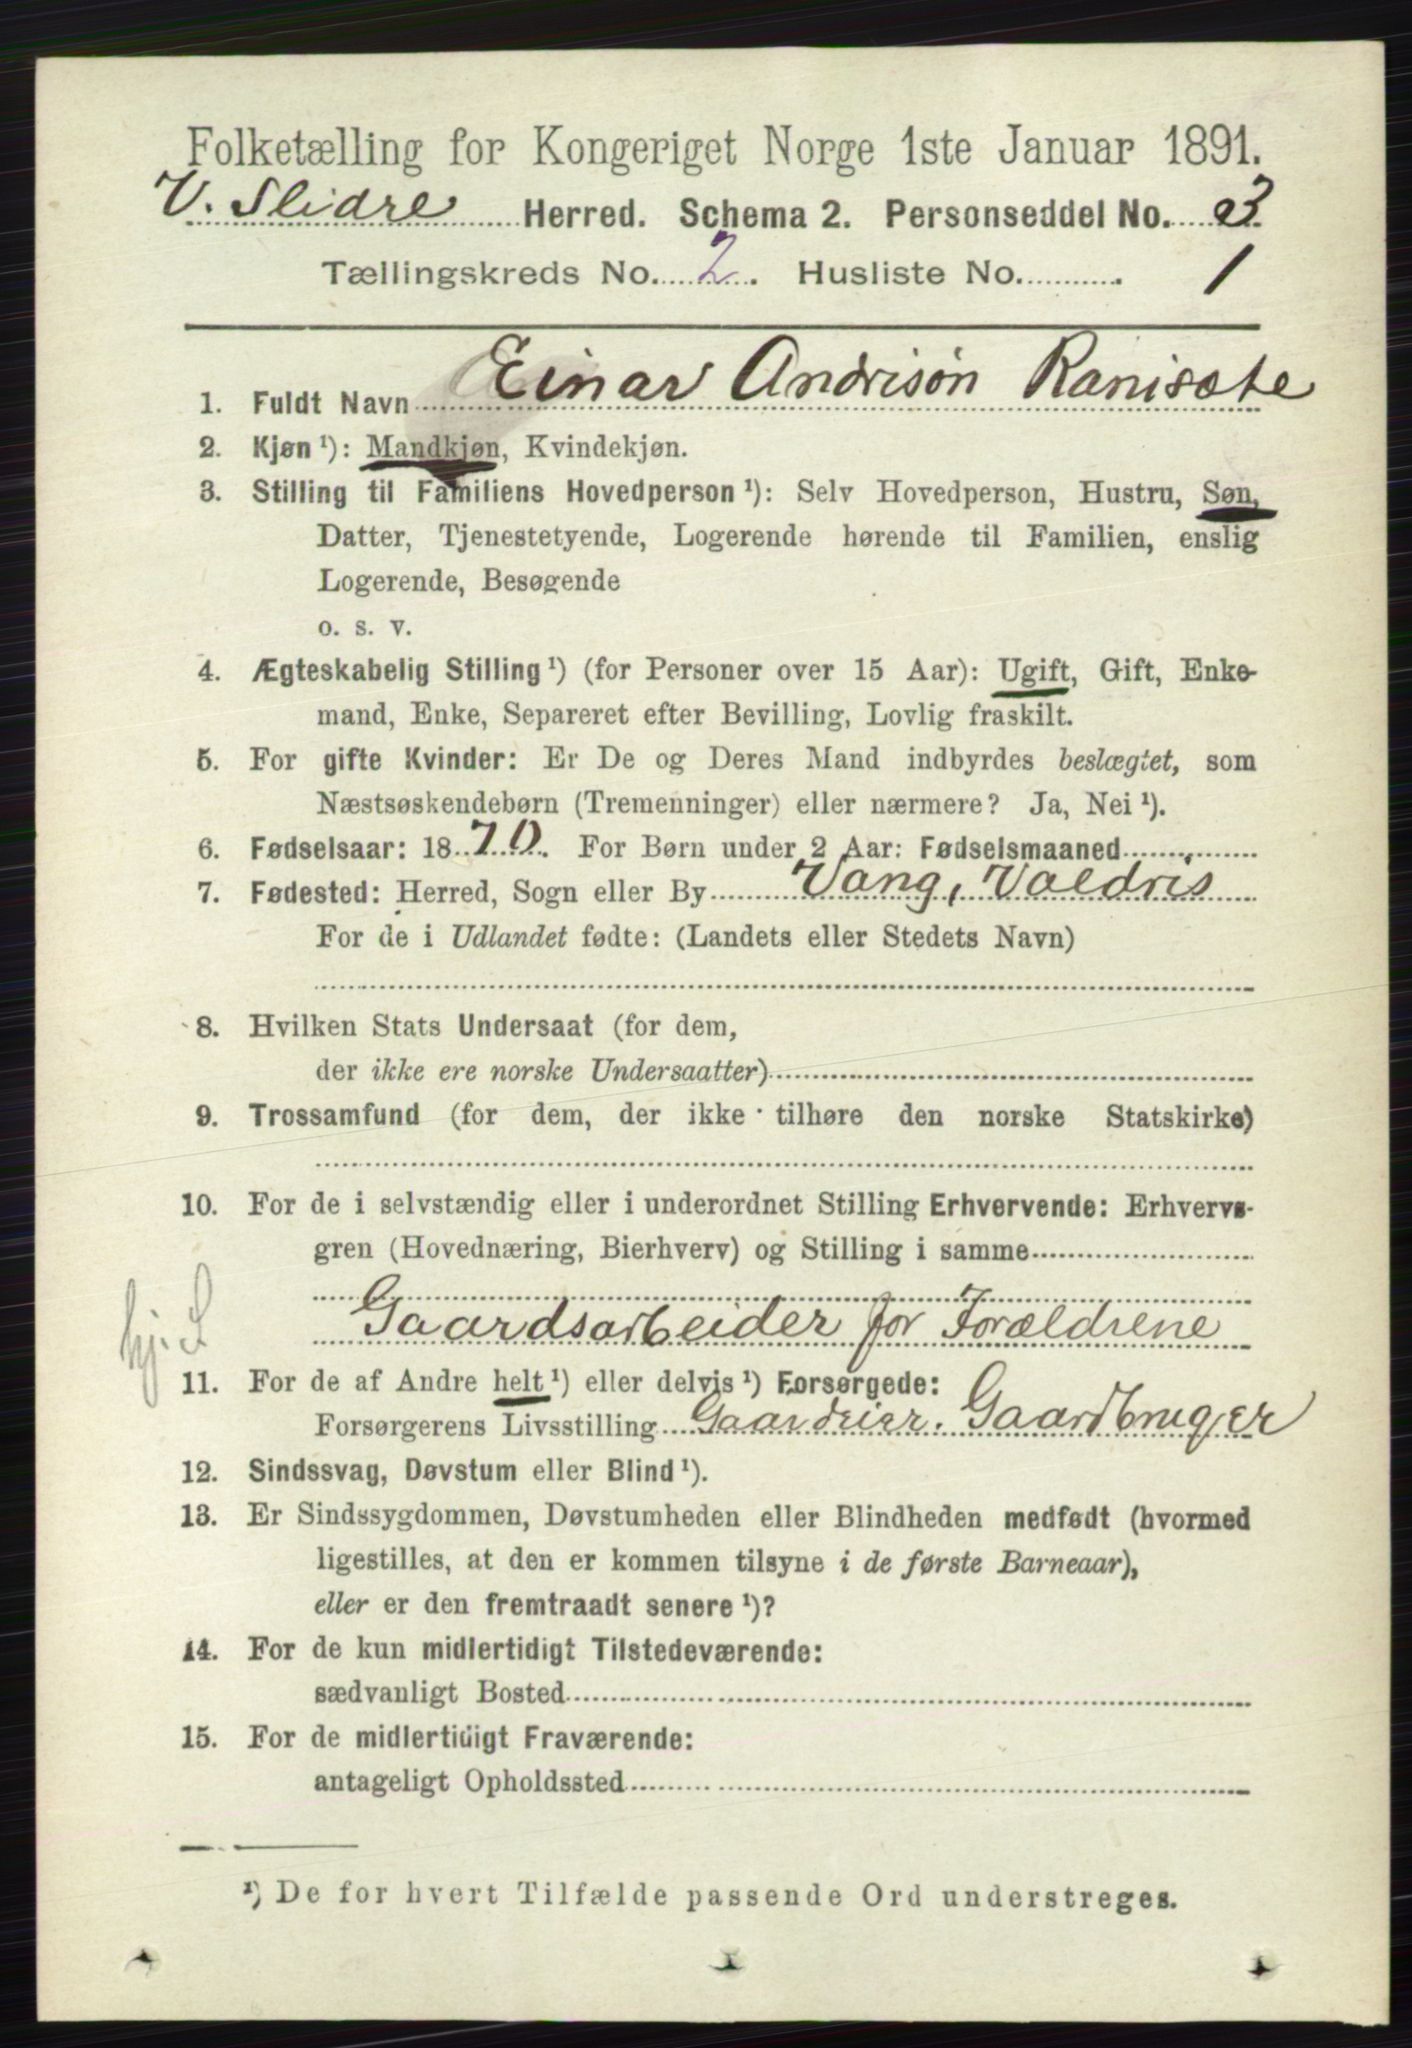 Folketælling for Kongeriget Norge 1ste Januar 1891.
V. Slidre Herred. Schema 2. Personseddel No. 3
Tællingskreds No. 2. Husliste No. 1
1. Fuldt Navn Einar Andrisøn Ranisæte
2. Kjøn ¹): Mandkjøn, Kvindekjøn.
3. Stilling til Familiens Hovedperson ¹): Selv Hovedperson, Hustru, Søn,
Datter, Tjenestetyende, Logerende hørende til Familien, enslig
Logerende, Besøgende
o. s. v.
4. Ægteskabelig Stilling ¹) (for Personer over 15 Aar): Ugift, Gift, Enke-
mand, Enke, Separeret efter Bevilling, Lovlig fraskilt.
5. For gifte Kvinder: Er De og Deres Mand indbyrdes beslægtet, som
Næstsøskendebørn (Tremenninger) eller nærmere? Ja, Nei ¹).
6. Fødselsaar: 1870. For Børn under 2 Aar: Fødselsmaaned
7. Fødested: Herred, Sogn eller By Vang, Valdris
For de i Udlandet fødte: (Landets eller Stedets Navn)
8. Hvilken Stats Undersaat (for dem,
der ikke ere norske Undersaatter)
9. Trossamfund (for dem, der ikke tilhøre den norske Statskirke)
10. For de i selvstændig eller i underordnet Stilling Erhvervende: Erhvervs-
gren (Hovednæring, Bierhverv) og Stilling i samme
Gaardsarbeider for Forældrene
11. For de af Andre helt ¹) eller delvis ¹) Forsørgede:
Forsørgerens Livsstilling Gaardeier. Gaardbruger
12. Sindssvag, Døvstum eller Blind ¹).
13. Er Sindssygdommen, Døvstumheden eller Blindheden medfødt (hvormed
ligestilles, at den er kommen tilsyne i de første Barneaar),
eller er den fremtraadt senere ¹)?
14. For de kun midlertidigt Tilstedeværende:
sædvanligt Bosted
15. For de midlertidigt Fraværende:
antageligt Opholdssted
¹) De for hvert Tilfælde passende Ord understreges.